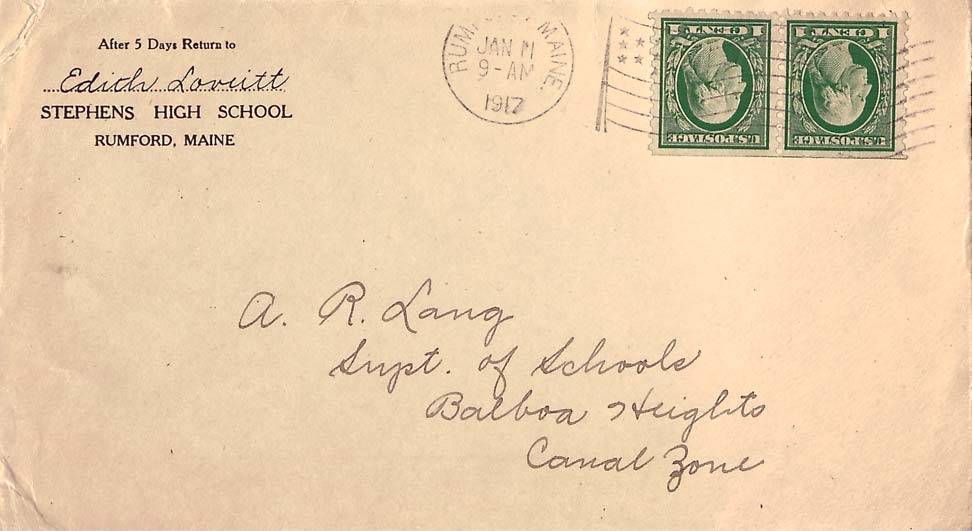 After 5 Days Return to
Edith Lovitt
STEPHENS HIGH SCHOOL
RUMFORD, MAINE
RUM MAINE
JAN 11
9-AM
1917
1 CENT 1
U.S. POSTAGE
1 CENT 1
U.S. POSTAGE
A. R. Lang
Supt. of Schools
Balboa Heights
Canal Zone